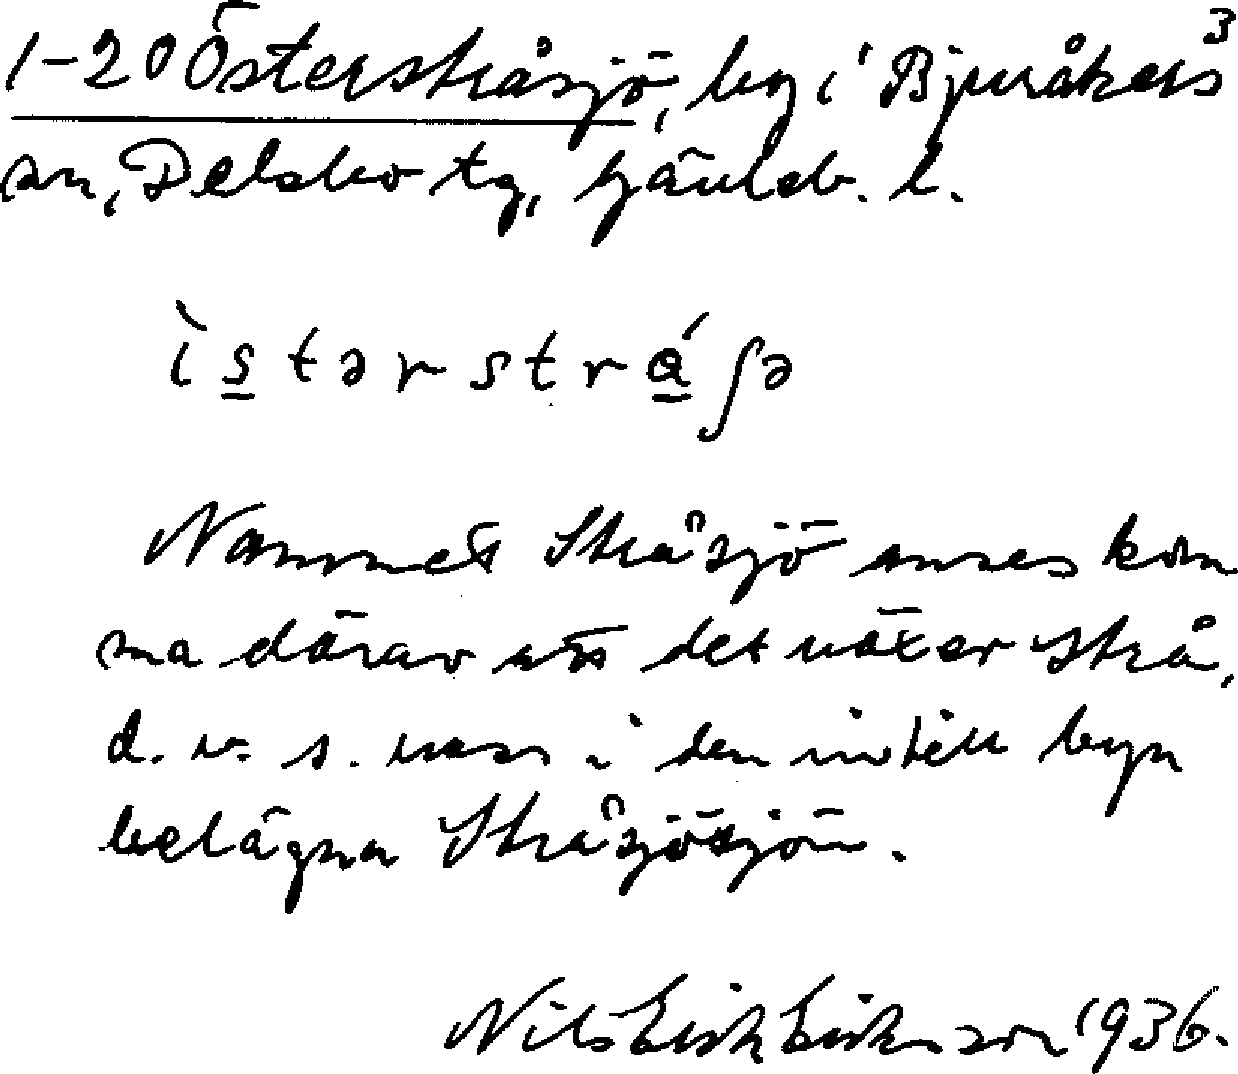 1-20 Österstråsjö, by i Bjuråkers 3
sn, Delsbo tg, Gävleb. l.
ìs̲tərstrá̲ʃə
Namnet Stråsjö anses kom
ma därav att det växer strå,
d. v. s. vass i den intill byn
belägna Stråsjösjön.
Nils Erik Eriksson 1936.